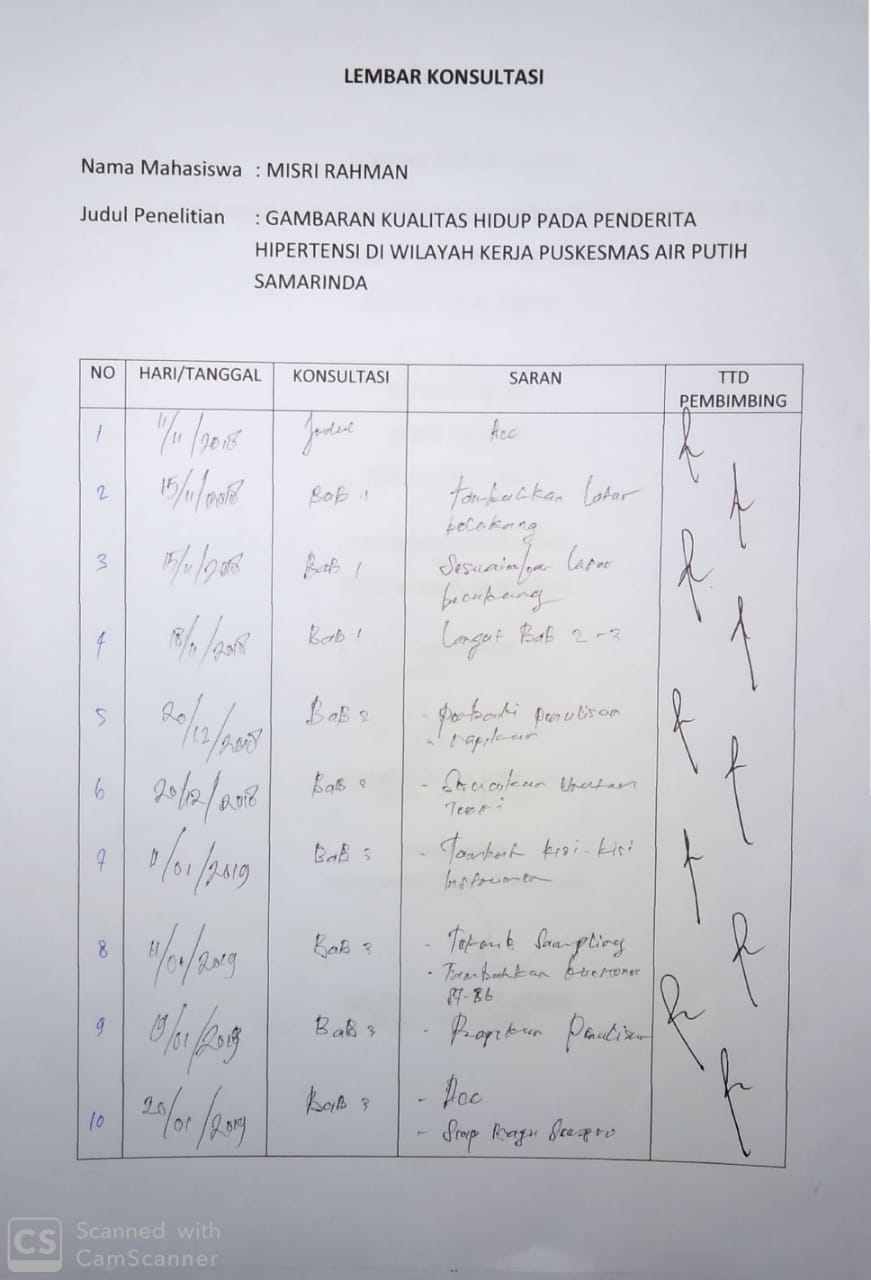 LEMBAR KONSULTASI
Nama Mahasiswa : MISRI RAHMAN
Judul Penelitian : GAMBARAN KUALITAS HIDUP PADA PENDERITA
HIPERTENSI DI WILAYAH KERJA PUSKESMAS AIR PUTIH
SAMARINDA
NO HARI/TANGGAL KONSULTASI SARAN TTD
PEMBIMBING
1 11/11/2018 Judul Acc
2 15/11/2018 BaB 1 tambahkan latar
belakang
3 15/11/2018 BaB 1 Sesuaikan latar
belakang
4 18/11/2018 Bab 1 Lanjut BaB 2-3
5 20/12/2018 BaB 2 - perbaiki penulisan
- rapikan
6 20/12/2018 BaB 2 - Sesuaikan urutan
Teori
7 11/01/2019 BaB 3 - Tambah kisi-kisi
Instrumen
8 11/01/2019 BaB 3 - Teknik Sampling
- Tambahkan kuesioner
9 19/01/2019 BaB 3 - Rapikan Penulisan
10 20/01/2019 BaB 3 - Acc
- Siap Maju Sempro
CS Scanned with
CamScanner